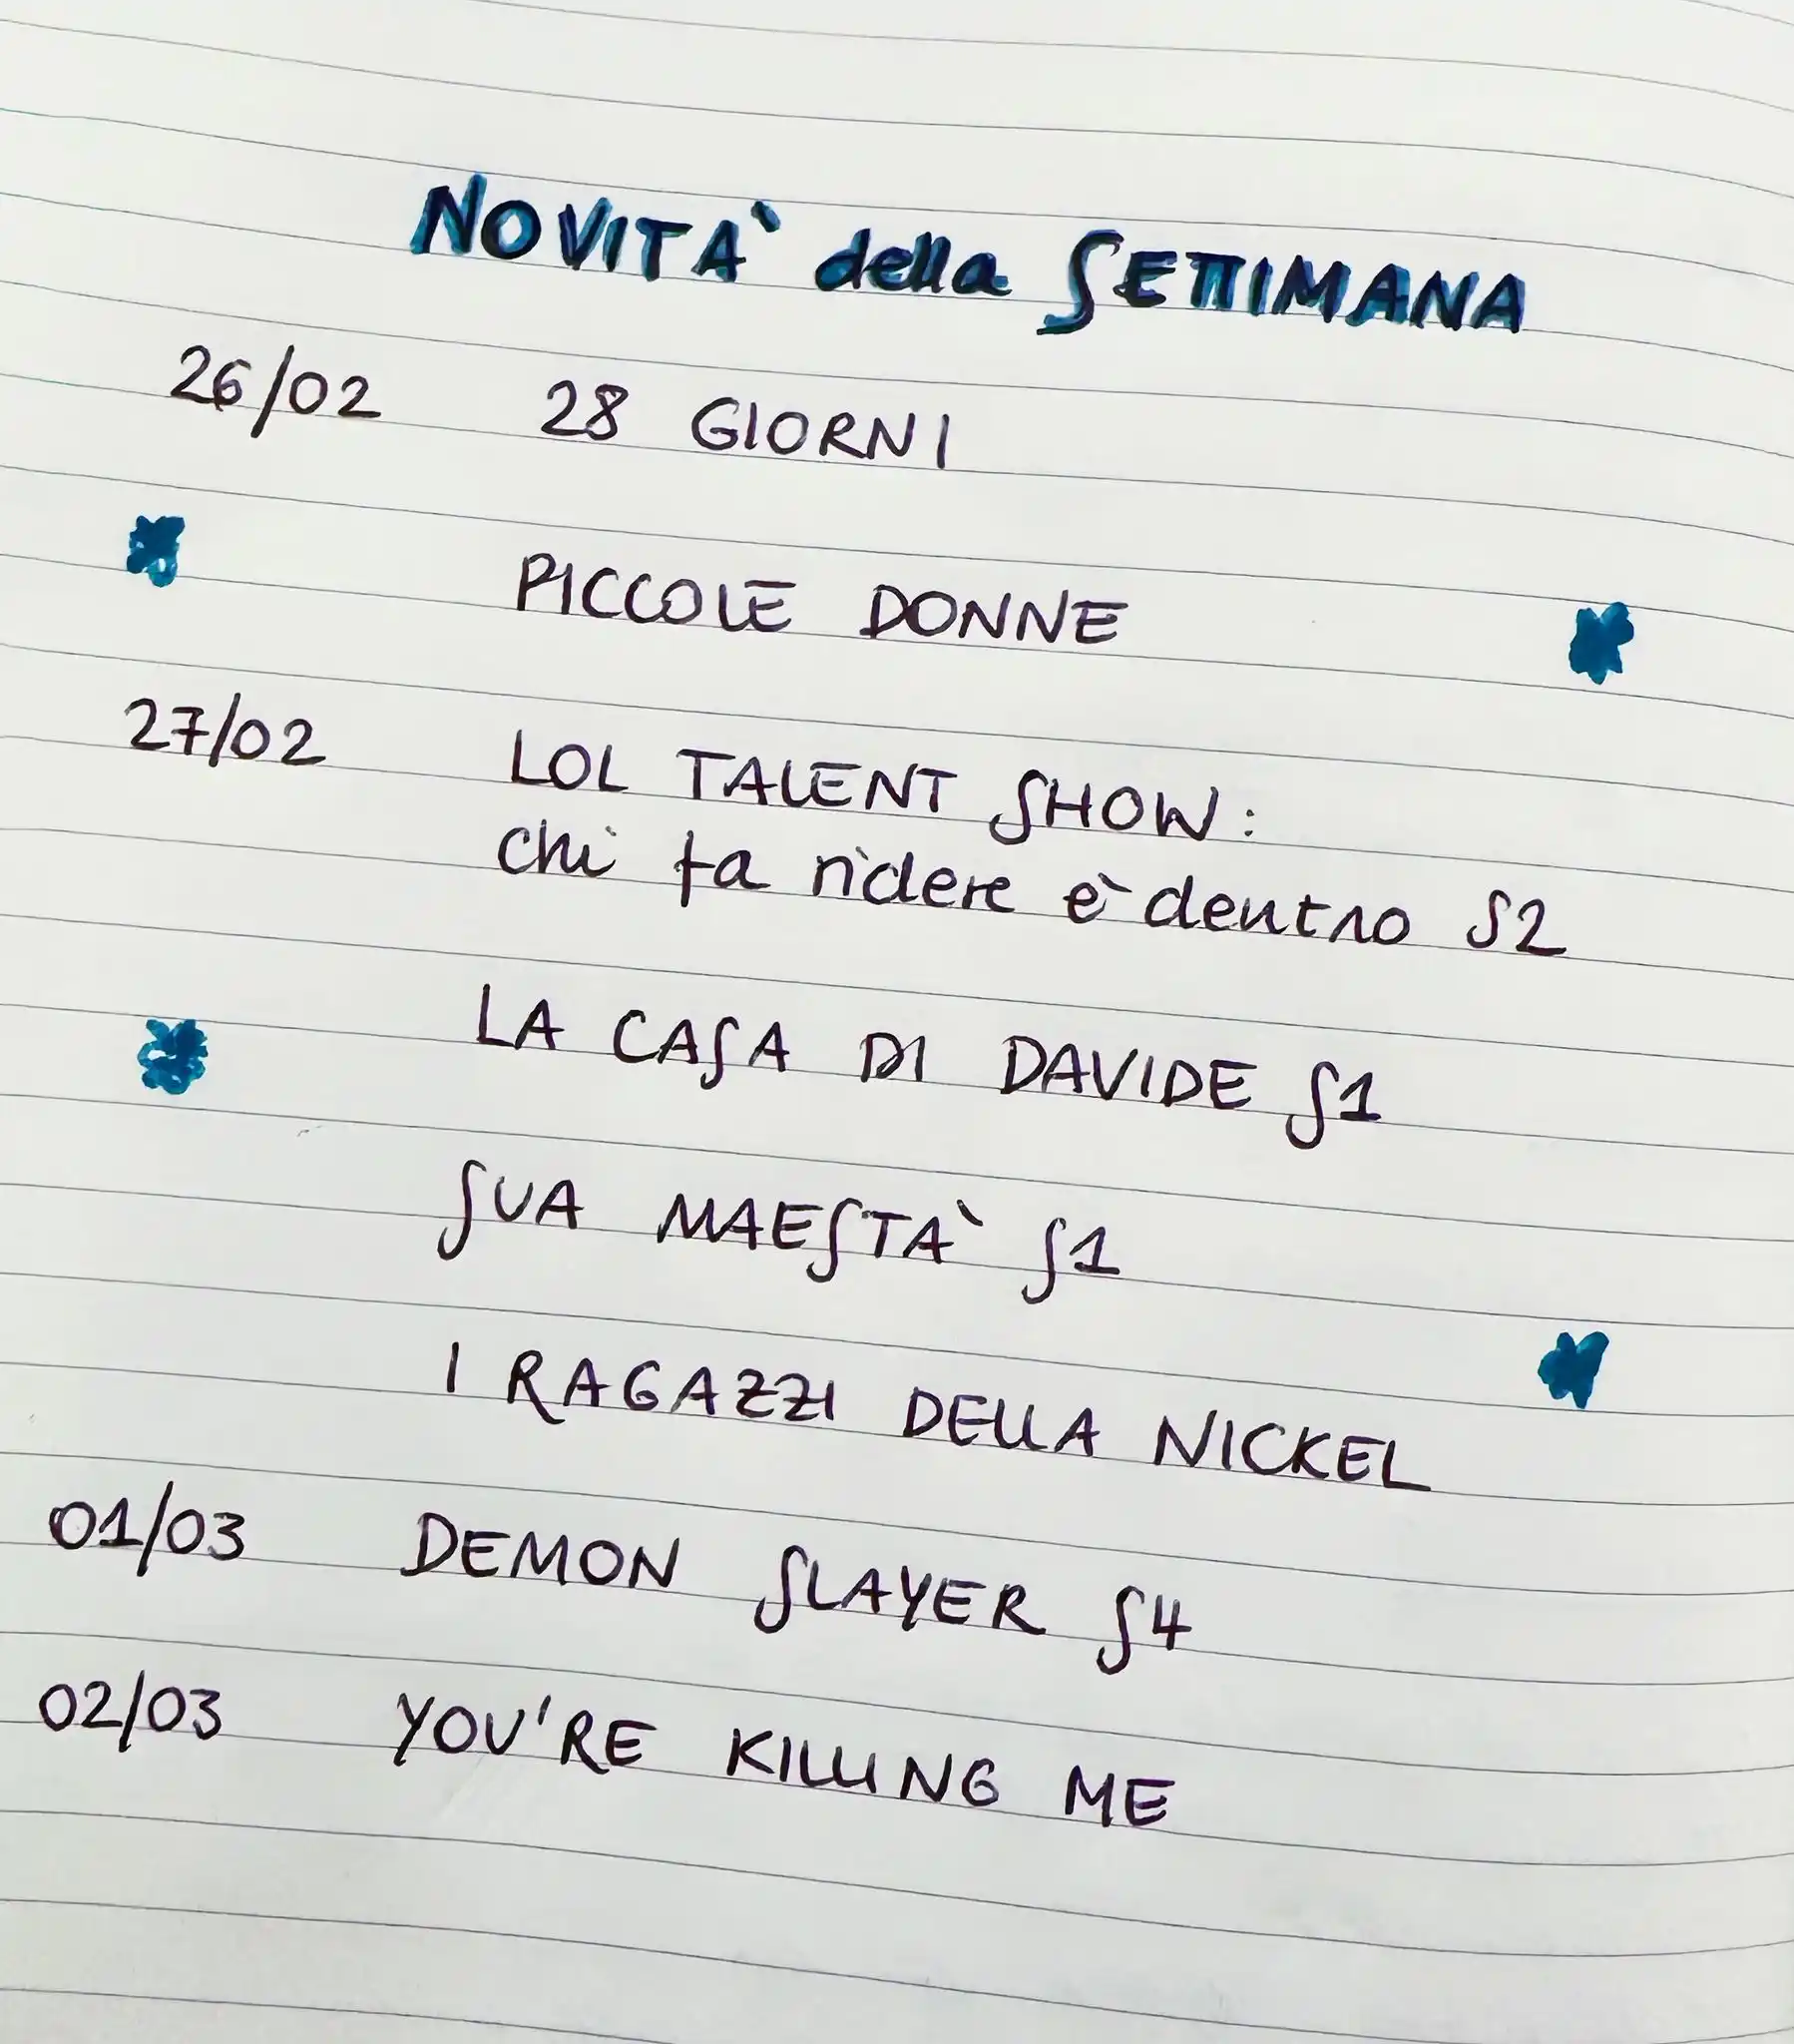 NOVITÀ della SETTIMANA
26/02 28 GIORNI
PICCOLE DONNE
27/02 LOL TALENT SHOW:
chi fa ridere è dentro S2
LA CASA DI DAVIDE S1
SUA MAESTÀ S1
I RAGAZZI DELLA NICKEL
01/03 DEMON SLAYER S4
02/03 YOU'RE KILLING ME